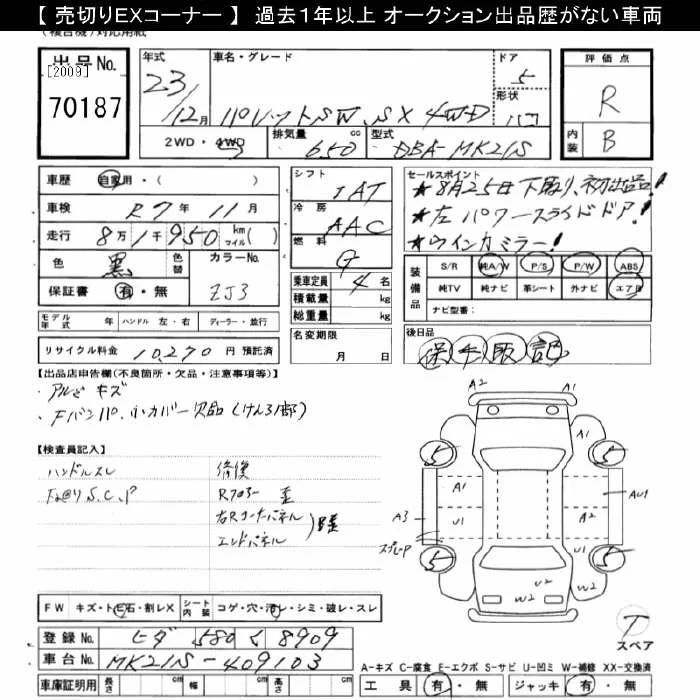 【 売切りEXコーナー 】 過去1年以上 オークション出品歴がない車両
出品No. [2009] 70187
年式 車名・グレード ドア 評価点
23/12月 パレットSW、SX 4WD 5 R
形状
2WD・4WD 排気量 cc 650 型式 DBA-MK21S 内装 B
車歴 自家用・( ) シフト IAT セールスポイント
車検 R7年11月 冷房 AAC ★8月25日下取り、初出品!
走行 8万1千950 km マイル( ) 燃料 G ★左パワースライドドア!
色 黒 色替 カラーNo. ZJ3 ★ウインカミラー!
保証書 有・無 乗車定員 4名
積載量 kg
総重量 kg
装備品 S/R 純A/W P/S P/W ABS
純TV 純ナビ 革シート 外ナビ エアB
ナビ型番( )
モデル年式 年 ハンドル 左・右 ディーラー・並行
名変期限 月 日
後日品 保 手 取 記
リサイクル料金 10,270円 預託済
【出品店申告欄(不良箇所・欠品・注意事項等)】
・アルミキズ
・Fバンパ 小カバー欠品(けん引部)
【検査員記入】
ハンドルスレ 修復
S.C.P
右Rコーナーパネル
エンドパネル
A2 A1
A1 A1 AU1
A3 U1 A2
スプレーP
U2 U2 W2 W2
A2
T スペア
FW キズ・トビ石・割レX シート内装 コゲ・穴・汚レ・シミ・破レ・スレ
登録No. 580 く 8909
車台No. MK21S-409103
A-キズ C-腐食 E-エクボ S-サビ U-凹ミ W-補修 XX-交換済
車庫証明用 長さ cm 幅 cm 高さ cm 工具 有・無 ジャッキ 有・無